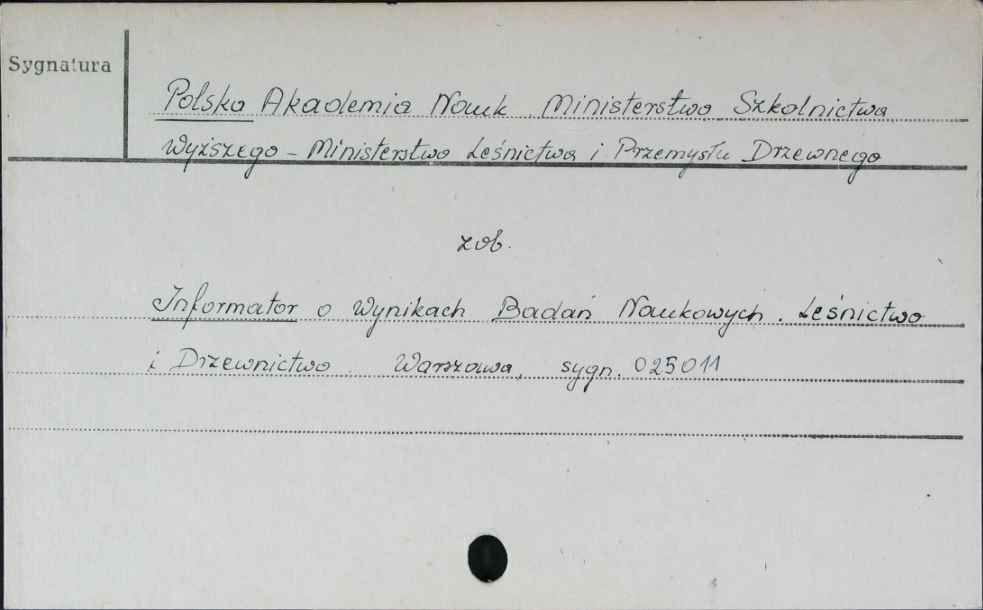 Sygnatura
Polska Akademia Nauk. Ministerstwo Szkolnictwa
Wyższego - Ministerstwo Leśnictwa i Przemysłu Drzewnego
zob.
Informator o Wynikach Badań Naukowych. Leśnictwo
i Drzewnictwo. Warszawa, sygn. 025011